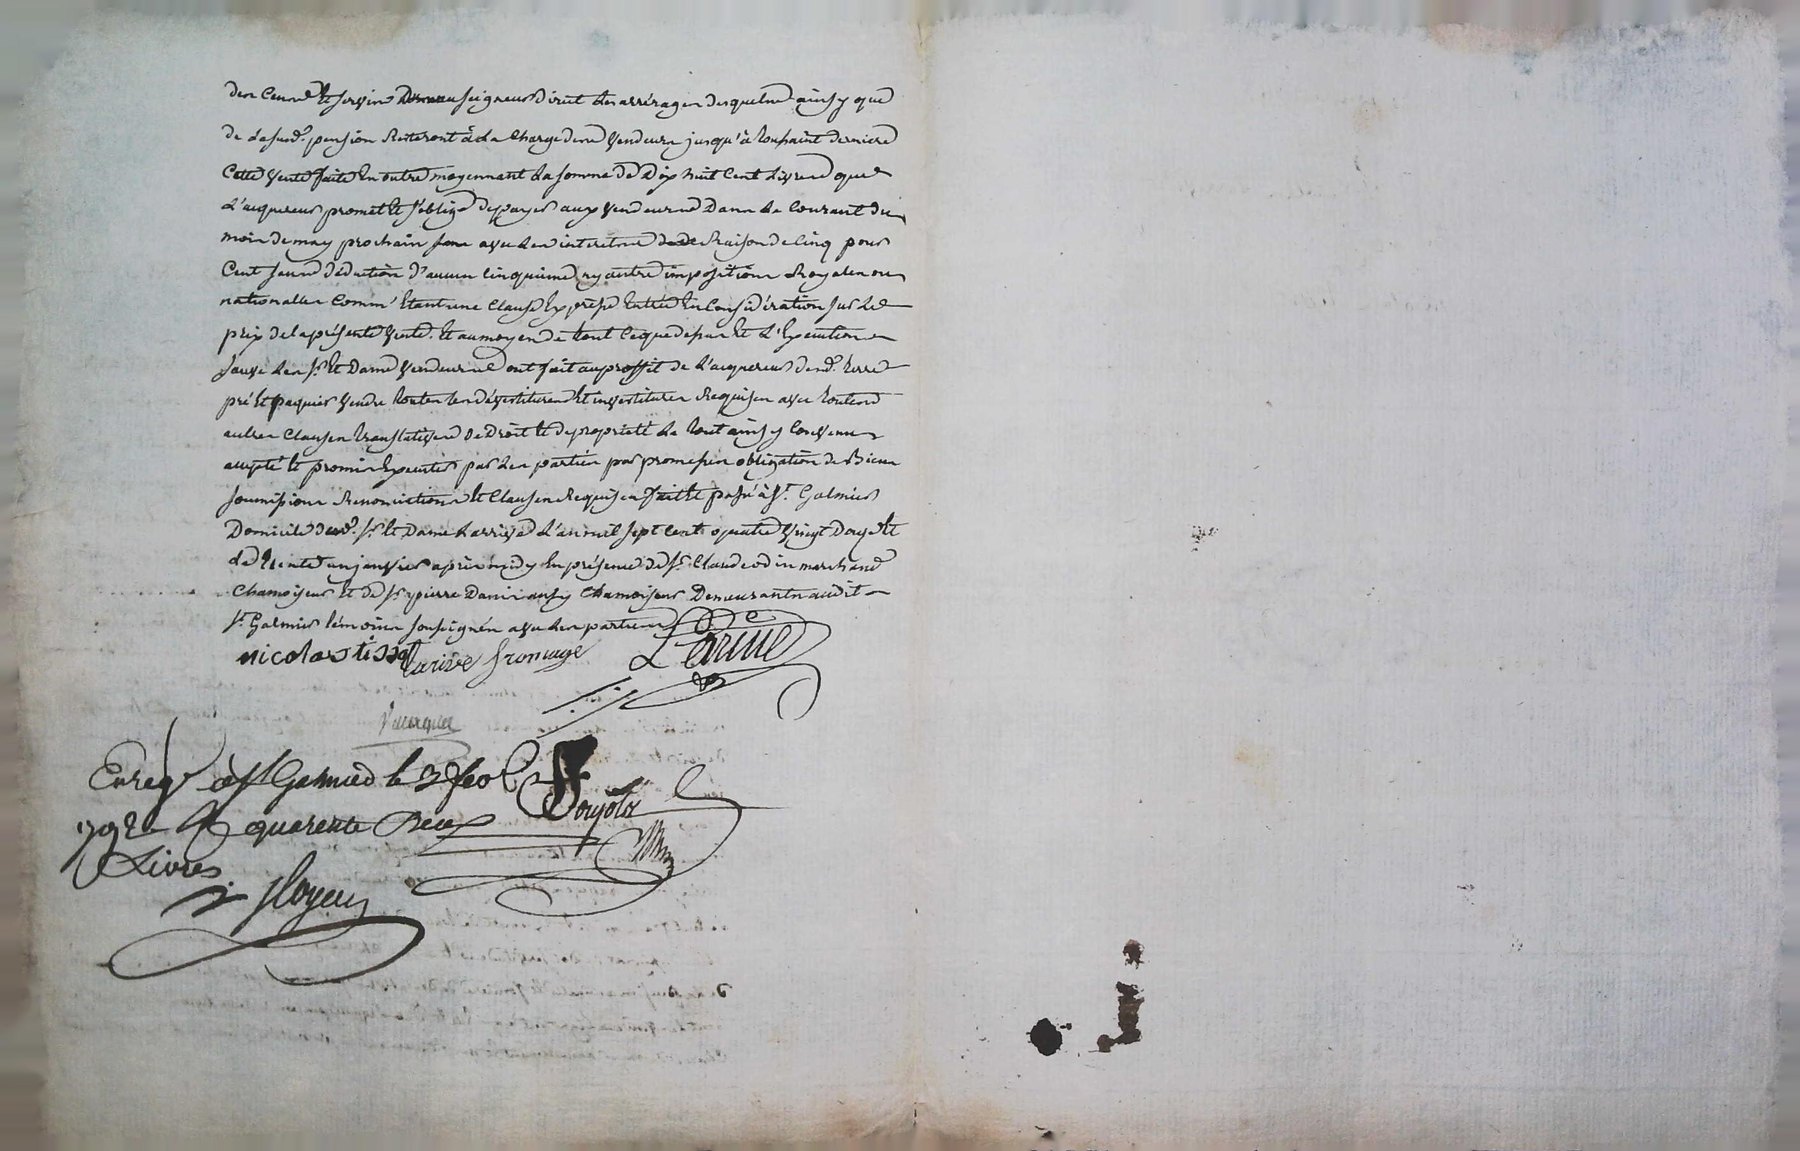 des Cens et servis Seigneur Direct les arrérages desquels ainsy que
de lasusd. pension Resteront à la Charge des Vendeurs jusqu'à toussaint derniere
Cette Vente faite En outre moyennant la somme de Dix huit Cent Livres que
L'acquereur promet Et s'oblige de payer aux Vendeurs Dans le Courant du
mois de may prochain sans avec les interets de Raison de Cinq pour
Cent sans déduction d'aucun Cinquieme ny autre imposition Royales ou
nationalles Comm' Etant une Clause Expresse Entrée En Considération sur le
prix de la présente Vente. Et au moyen de tout Ceque dessus Et L'Execution
sauve les Sr. Et Dame Vendeurs ont fait au proffit de L'acquereur desd. terre
pré Et paquier Vendu toutes les dévestitures Et investitures Requises avec toutes
autres Clauses translatives de Droit Et de propriété le tout ainsy Convenu
accepté Et promis Executer par les parties par promesses obligation de Biens
soumissions Renonciations Et Clauses Requises fait Et passé à St. Galmier
Domicile desd. Sr. Et Dame Larrive L'an mil sept Cent quatre Vingt Douze Et
le trente un janvier après midy En présence de Sr. Claude odin marchand
Chamoiseur Et de Sr. pierre Danis aussy Chamoiseur Demeurants audit
St. Galmier témoins soussignés avec les parties
nicolas tissot larive fromage Larive
Enregé à St Galmier le 3 feo
1792 R quarente Deux
Livres